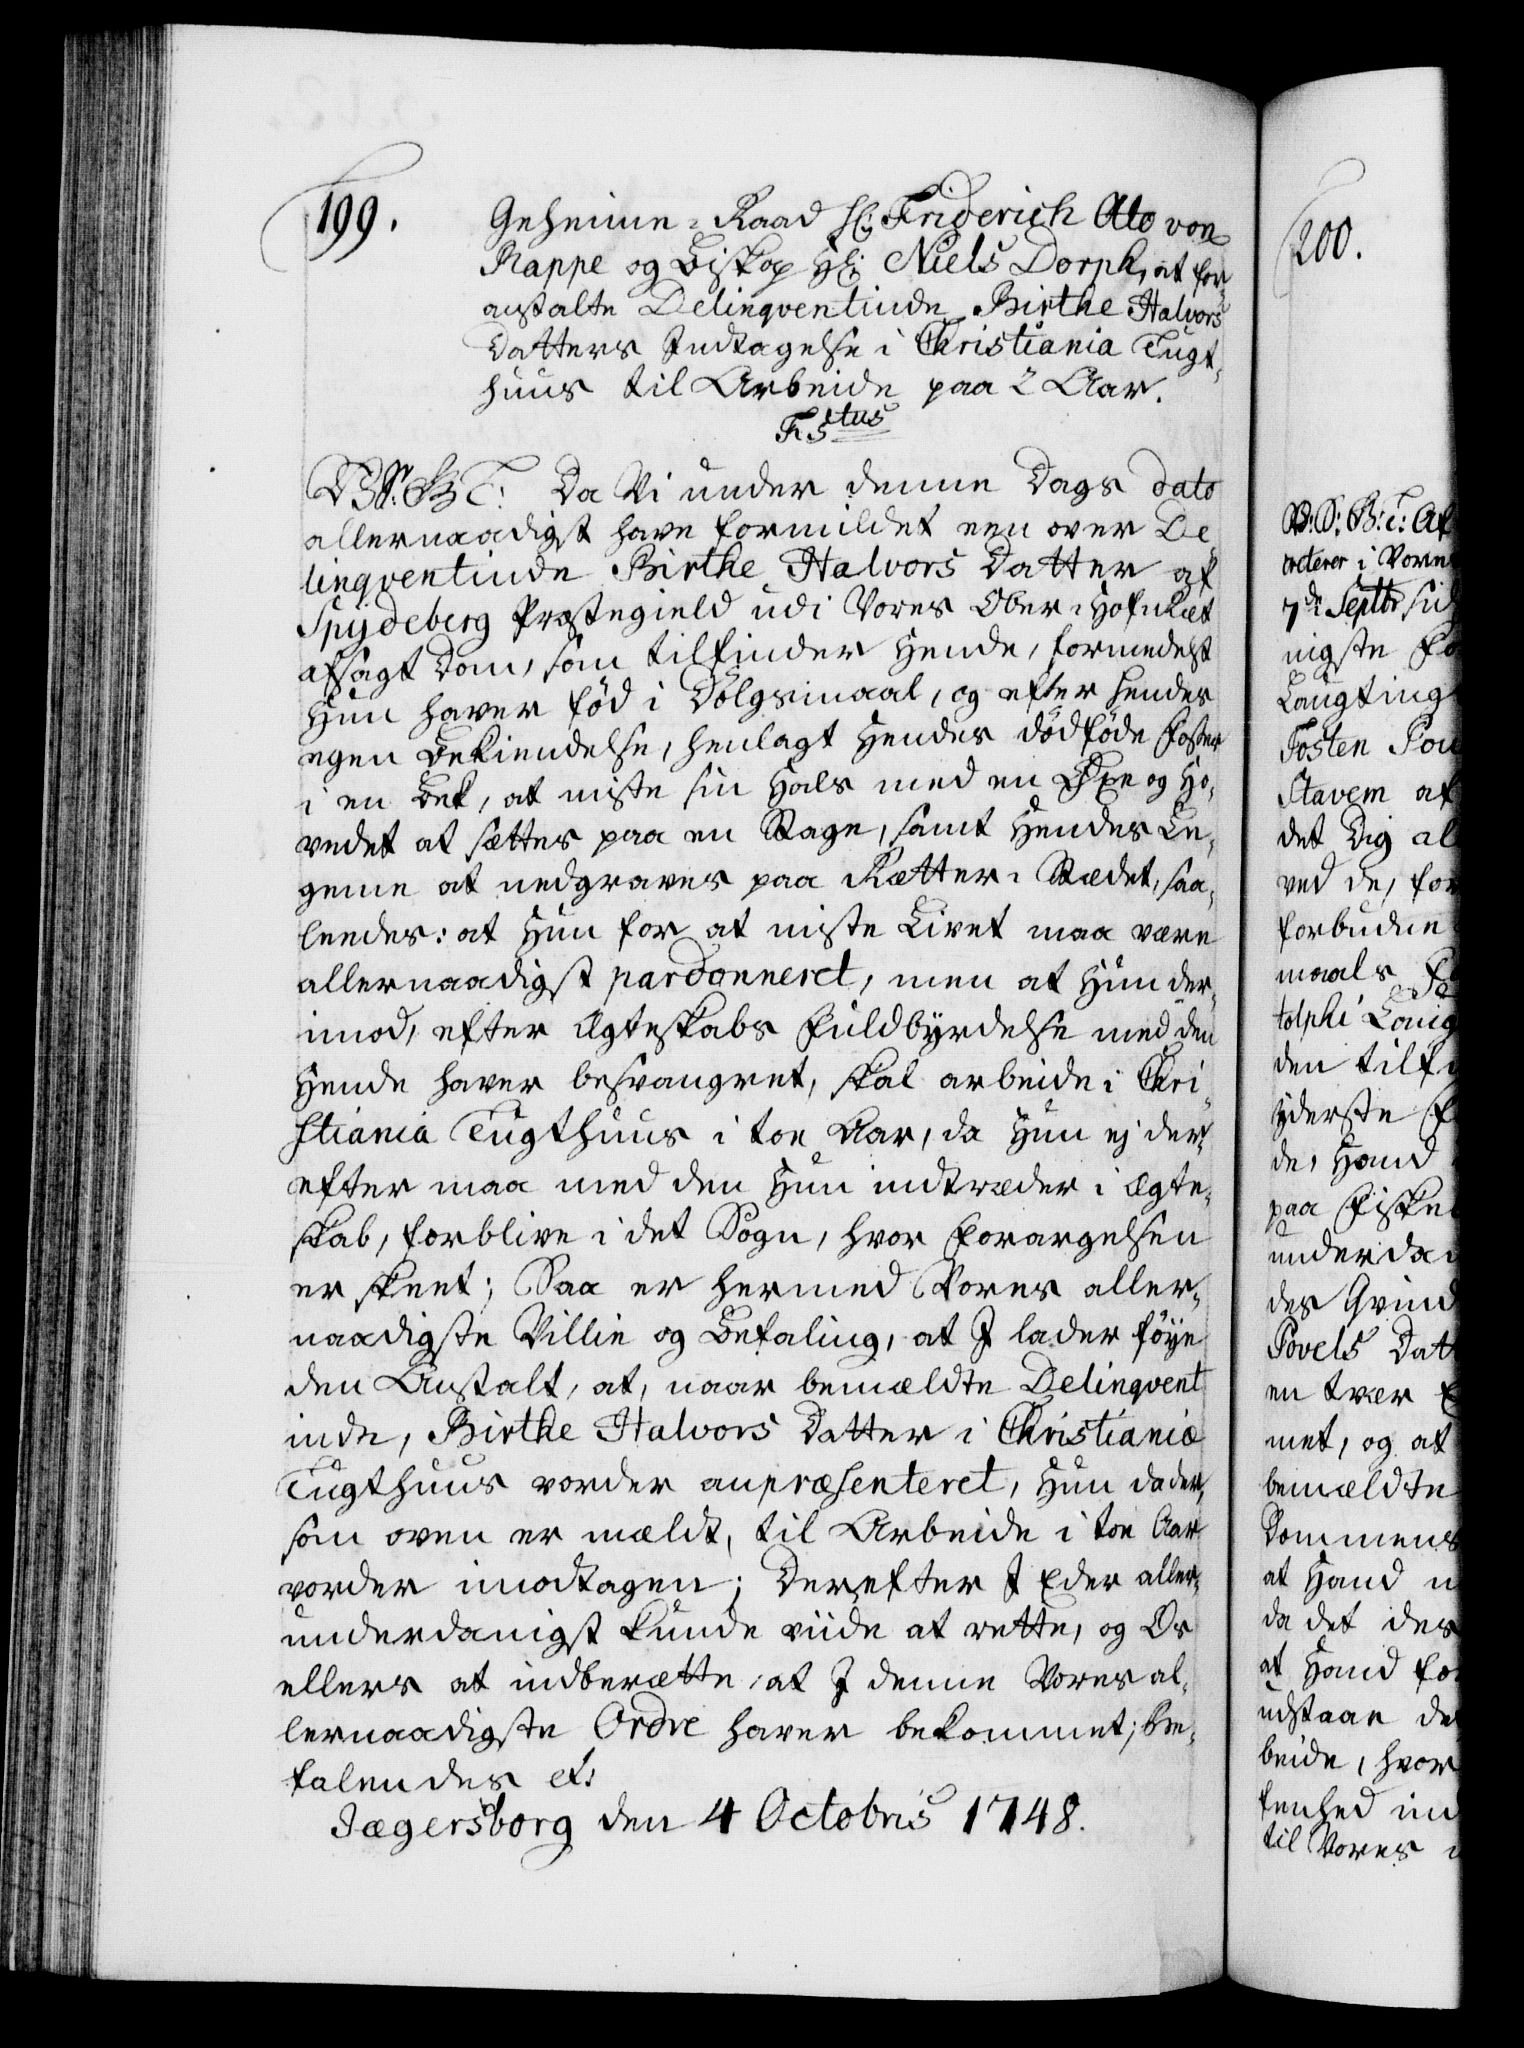 199.
Geheime-Raad Hr: Friderich Oto von
Rappe og Biskop Hr: Niels Dorph, at for
anstalte Delinqventinde Birthe Halvors
Datters Indtagelse i Christiania Tugt-
huus til Arbeide paa 2 Aar.
F5tus
Da Vi under denne Dags dato
allernaadigst have formildet een over De
linqventinde Birthe Halvors Datter af
Spydeberg Præstegield udi Vores Ober-Hof-Ræt
afsagt Dom, som tilfinder Hende, formedelst
Hun haver fød i Dølgsmaal, og efter hendes
egen Bekiendelse, henlagt Hendes dødføde Foster
i en Bek, at miste sin Hals med en Øxe og Ho-
vedet at sættes paa en Stage, samt Hendes Le-
geme at nedgraves paa Retter-Stædet, saa-
leedes: at Hun for at miste Livet maa være
allernaadigst pardonneret, men at Hun der-
imod, efter Ægteskabs Fuldbyrdelse med den
Hende haver besvangret, skal arbeide i Chri-
stiania Tugthuus i toe Aar, da Hun ej der-
efter maa med den Hun indtræder i Ægte-
skab, forblive i det Sogn, hvor Forargelsen
er skeet; Saa er hermed Vores aller-
naadigste Villie og Befaling, at I lader føye
den Anstalt, at, naar bemældte Delinqvent
inde, Birthe Halvors Datter i Christianiæ
Tugthuus vorder anpræsenteret, Hun da der,
som oven er mældt, til Arbeide i toe Aar
vorder imodtagen; Derefter I Eder aller-
underdanigst kunde viide at rette, og Os
ellers at indberætte, at I denne Vores al-
lernaadigste Ordre haver bekommet; Be-
falendes etc:
Jægersborg den 4 Octobris 1748.
200.
B: S: G: T: At
7de Septbr sid
nigste Fo
Laugting
Tosten Pou
Stavem at
det Dig al
ved de, for
forbudne
maals
tolphi Laug
den tilfi
yderste F
de, Hand
paa Fiske
underda
des Qvind
Povels Dat
en tvær
met, og at
bemældte
Dommens
at Hand
da det des
at Hand for
udstaae de
beide, hvor
fenhed ind
til Vores